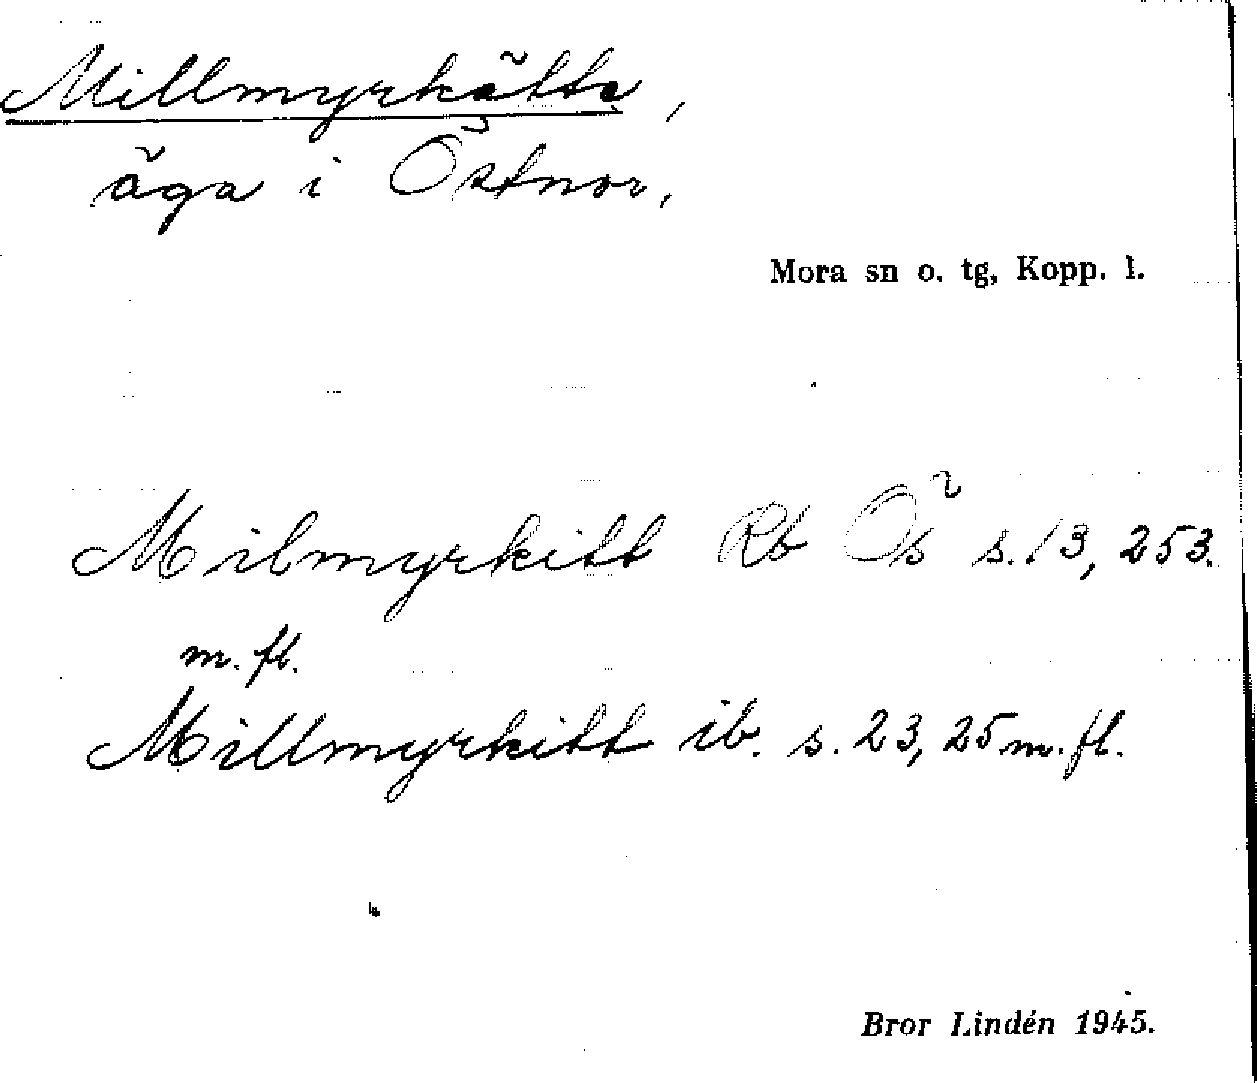 Millmyrkätte,
äga i Östnor,
Mora sn o. tg, Kopp. l.
Milmyrkitt Rb Ös s. 13, 253.
m. fl.
Millmyrkitt ib. s. 23, 25 m. fl.
Bror Lindén 1945.